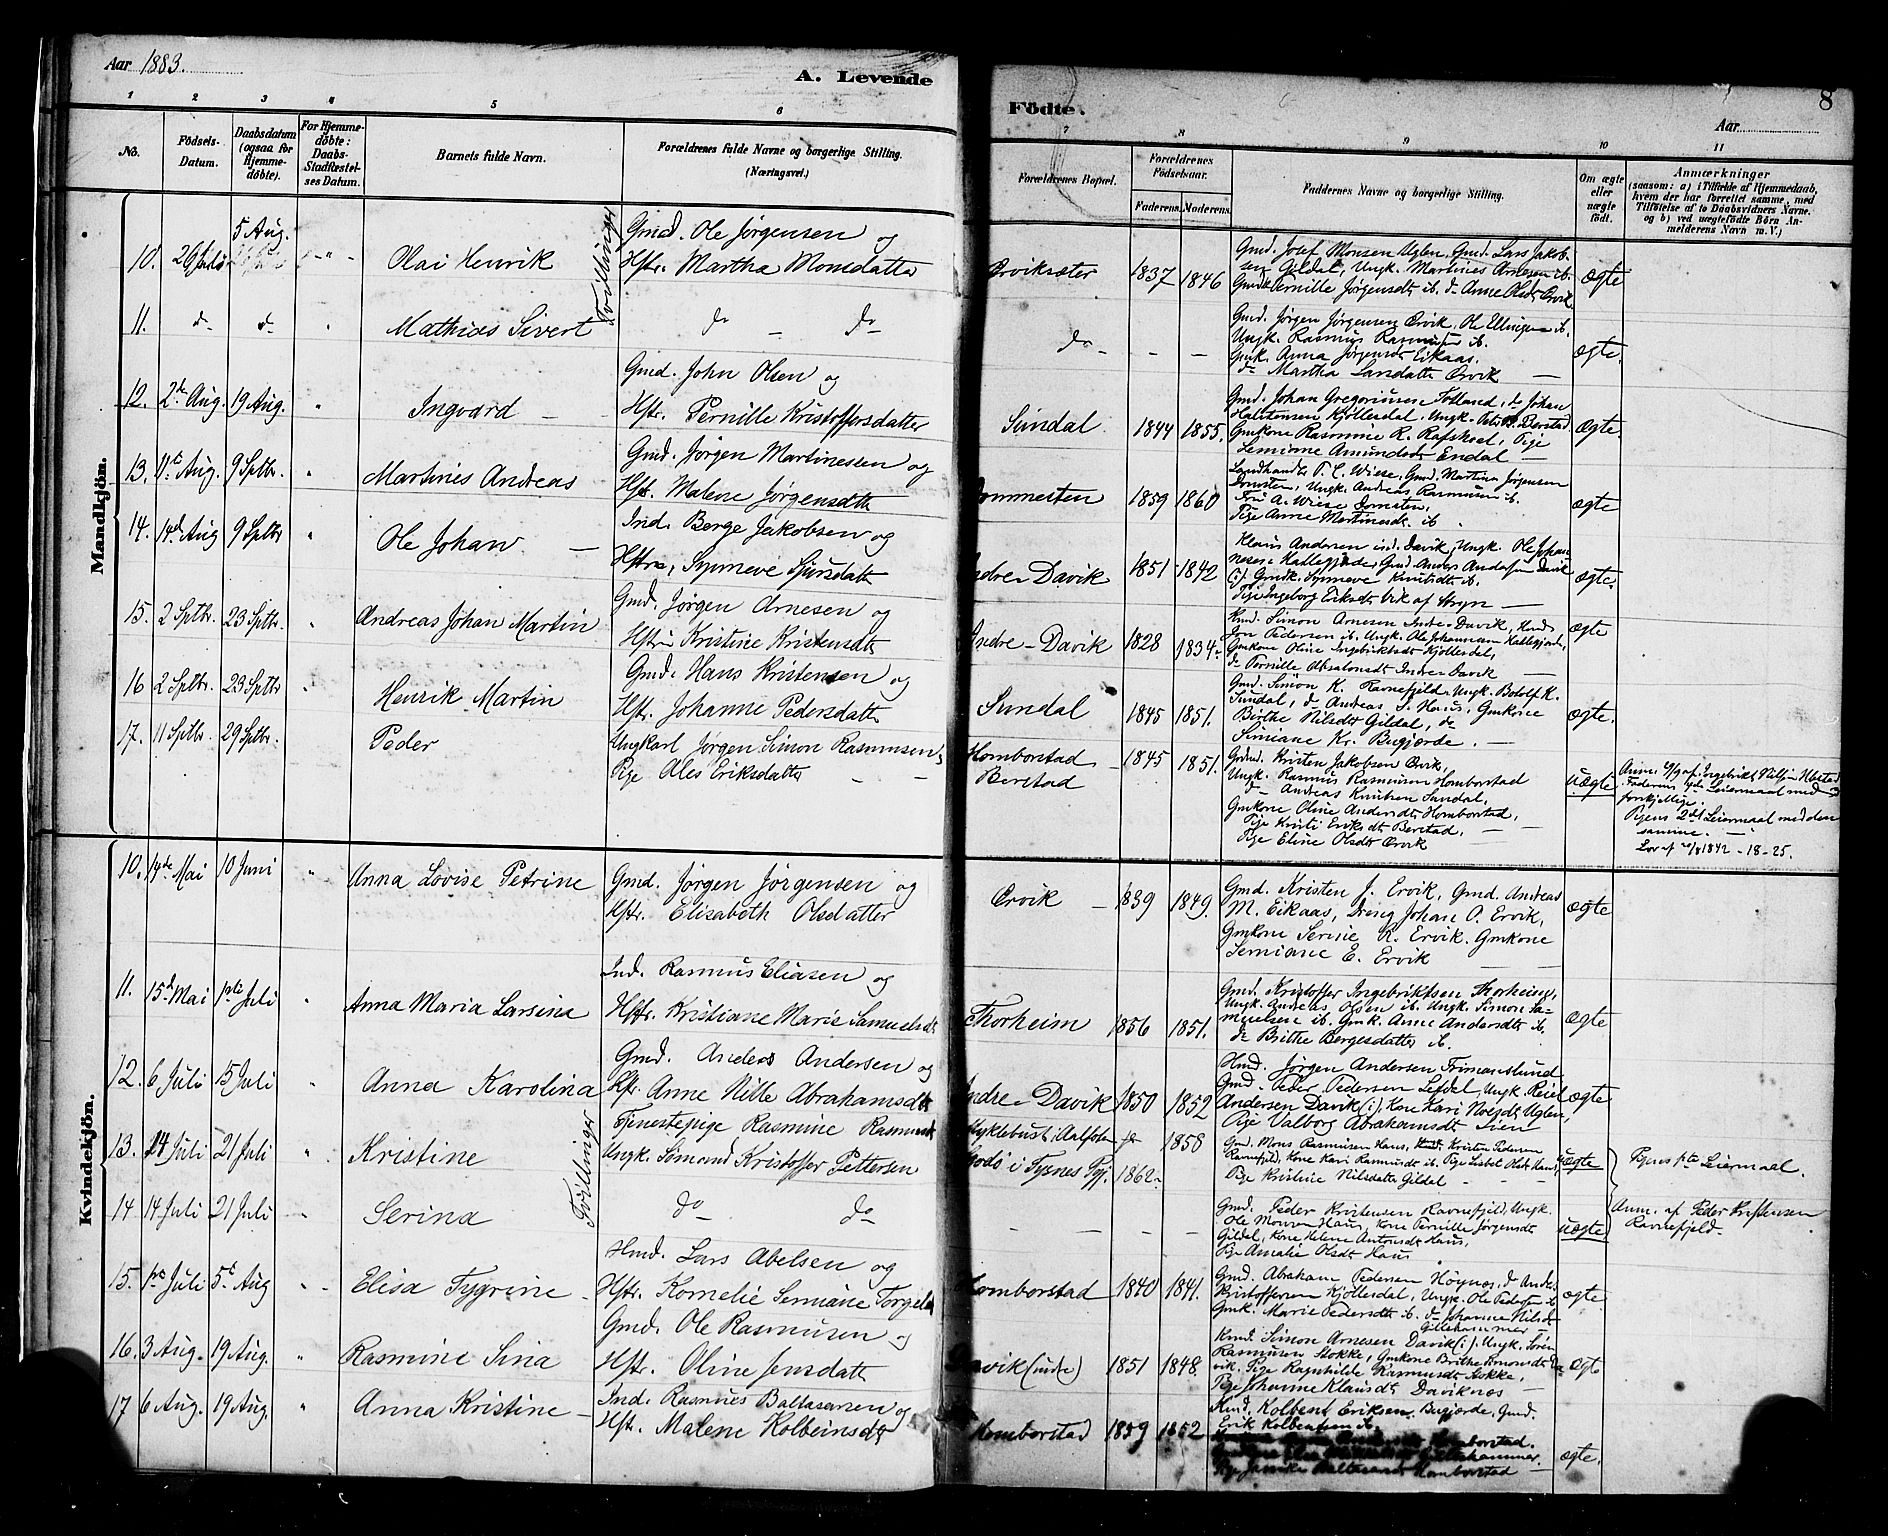 Aar 1883.
A. Levende
Födte.
8
Aar
1 2 3 4 5 6 7 8 9 10 11
No.
Födsels-Datum.
Daabsdatum (ogsaa for Hjemmedöbte).
For Hjemmedöbte: Daabs-Stadfæstelses Datum.
Barnets fulde Navn.
Forældrenes fulde Navne og borgerlige Stilling. (Næringsvei.)
Forældrenes Bopæl.
Forældrenes Födselsaar.
Faderens. Moderens.
Faddernes Navne og borgerlige Stilling.
Om ægte eller uægte födt.
Anmærkninger
(saasom: a) i Tilfælde af Hjemmedaab, hvem der har forrettet samme, med Tilföielse af to Daabsvidners Navne. og b) ved uægtefödte Börn Anmelderens Navn m. V.)
Mandkjön.
10. 29 Juli 5 Aug. Olai Henrik Tvillinger Gmd. Ole Jørgensen og
Hstr. Martha Monsdatter Erviksæter 1837 1846 ægte
Gmd. Josef Monsen Uglen, Gmd. Lars Jakob-
sen Gildal, Ungk. Martines Arnesen ib.
Gmdk Pernille Jørgensdt ib. do Anne Olsdt Ervik
11. do do Mathias Sivert do do do ægte
Gmd. Jørgen Jørgensen Ervik, Ole Ellingsen ib.
Ungk. Rasmus Rasmusen ib.
Gmk. Anna Jørgensdt Eikaas.
do Martha Larsdatter Ervik
12. 2de Aug. 19 Aug. Ingvard Gmd. John Olsen og
Hstr. Pernille Kristoffersdatter Sundal 1844 1855. ægte.
Gmd. Johan Gregoriusen Totland, do Johan
Halstensen Kjøllesdal, Ungk. Peter B. Berstad
Gmkone Rasmine R. Rafskeel, Pige
Lemine Amundsdt Endal
13. 11te Aug. 9 Sptbr. Martines Andreas Gmd. Jørgen Martinessen og
Hstr. Malene Jørgensdtr Dommesten 1859 1860 ægte
Landhandler T. C. Wiese, Gmd. Martin Jørgensen
Domsten, Ungk. Andreas Rasmusen ib.
Fru A. Wiese Domsten,
Pige Anne Martinesdt ib.
14. 14de Aug 9 Sptbr Ole Johan Ind. Berge Jakobsen og
Hstru, Synneve Sjursdatter Indre-Davik 1851 1842 ægte.
Klaus Andersen ind. Davik, Ungk. Ole Johan-
nesen Hallegjerde, Gmd. Anders Andersen Davik
(i). Gmdk. Synneve Knutsdt ib.
Pige Ingeborg Eriksdt Vik af Stryn
15. 2 Sptbr. 23 Sptbr. Andreas Johan Martin Gmd. Jørgen Arnesen og
Hstru Kristine Kristensdt Indre-Davik 1828 1834 ægte
Hmd. Simon Arnesen Indre-Davik, Hmd
Jon Pedersen ib. Ungk. Ole Johannesen Hallegjerde,
Gmkone Oline Ingebriktsdt Kjøllesdal,
do Pernille Absalonsdt Indre Davik
16 2 Sptbr. 23 Sptbr Henrik Martin Gmd. Hans Kristensen og
Hstr. Johanne Pedersdatter Sundal 1845 1851. ægte.
Gmd. Simon K. Ravnefjeld, Ungk. Botolf K.
Sundal, do Andreas S. Haus, Gmkone
Birthe Nilsdt Gildal, do
Simiane Kr. Bugjerde.
17. 11 Sptbr. 29 Sptbr. Peder Ungkarl Jørgen Simon Rasmusen,
Pige Oles Eriksdatter Homborstad
Berstad 1845 1851. uægte
Gmd. Kristen Jakobsen Ervik,
Ungk. Rasmus Rasmusen Homborstad
do Andreas Knutsen Sundal,
Gmkone Oline Andersdt Homborstad,
Pige Kristi Eriksdt Berstad,
Pige Eline Olsdt Ervik
Faderens Leiermaal med
forskjellige.
Pigens 2det Leiermaal med den
samme.
Lov af 1842 - 18 - 25.
Kvindekjön.
10. 14de Mai 10 Juni Anna Lovise Petrine Gmd. Jørgen Jørgensen og
Hstr. Elisabeth Olsdatter Ervik 1839 1849. ægte
Gmd. Kristen J. Ervik, Gmd Andreas
M. Eikaas, Dreng Johan O. Ervik,
Gmkone Serine R. Ervik. Gmkone
Semiane E. Ervik
11. 15de Mai 1ste Juli Anna Maria Larsina Ind. Rasmus Eliasen og
Hstr. Kristiane Marie Samuelsdt Thorheim 1856 1851. ægte
Gmd. Kristoffer Ingebriktsen Thorheim,
Ungk. Andreas Olsen ib. Ungk. Simon Sa-
muelsen ib. Gmk. Anne Andersdt ib.
do Brithe Bergesdatter ib.
12. 6 Juli 15 Juli Anna Karolina Gmd. Anders Andersen og
Hstr. Anne Nille Abrahamsdt Indre-Davik 1850 1852 ægte
Hmd. Jørgen Andersen Frimanslund
Gmd. Peder Pedersen Lefdal, Ungk Reiel
Andersen Davik (i), Kone Kari Nielsdt Uglen,
Pige Valborg Abrahamsdt Sien
13. 14 Juli 21 Juli Kristine Tvillinger Tjenestepige Rasmine Rasmusdt
Ungk. Sømand Kristoffer Pettersen Myklebust i Aalfoten 1858
Godø i Fysnes Pgj. 1862 uægte
Gmd. Mons Rasmusen Haus, Kristen Pedersen
Ravnefjeld, Kone Kari Rasmusdt ib. Pige Lisbet Olsdt Haus,
Pige Kristine Nilsdatter Gildal
Pigens 1ste Leiermaal.
14 14 Juli 21 Juli Serina do do uægte
Gmd. Peder Kristensen Ravnefjeld, Ungk.
Ole Monsen Haus, Kone Pernille Jørgensdt
Gildal, Kone Helene Antonsdt Haus,
Pige Amalie Olsdt Haus
Anm. af Peder Kristensen
Ravnefjeld
15. 1ste Juli 5te Aug Elisa Tygrine Hmd. Lars Abelsen og
Hstr. Kornelie Semiane Torgels Homborstad 1840 1841. ægte
Gmd. Abraham Pedersen Høynæs, do Anders
Kristoffersen Kjøllesdal, Ungk. Ole Pedersen ib
Gmk. Marie Pedersdt ib. do Johanne Nilsdt
Gillehammer
16. 3 Aug. 19 Aug. Rasmine Sina Gmd. Ole Rasmusen og
Hstr. Oline Jensdatter Davik (indre) 1851 1848. ægte
Hmd. Simon Arnesen Davik (i), Ungk. Søren
Rasmusen Stokke, Gmkone Brithe Simonsdt Da-
vik. Pige Ragnhilde Rasmusdt Stokke,
Pige Johanne Klausdt Daviknæs
17 6 Aug. 19 Aug. Anna Kristine Ind. Rasmus Baltasarsen og
Hstr. Malene Kolbeinsdt Homborstad 1859 1852 ægte.
Hmd. Kolbent Eriksen Bugjerde, Gmd.
Erik Kolbentsen ib.
Homborstad.
Gillehammer.
Homborstad